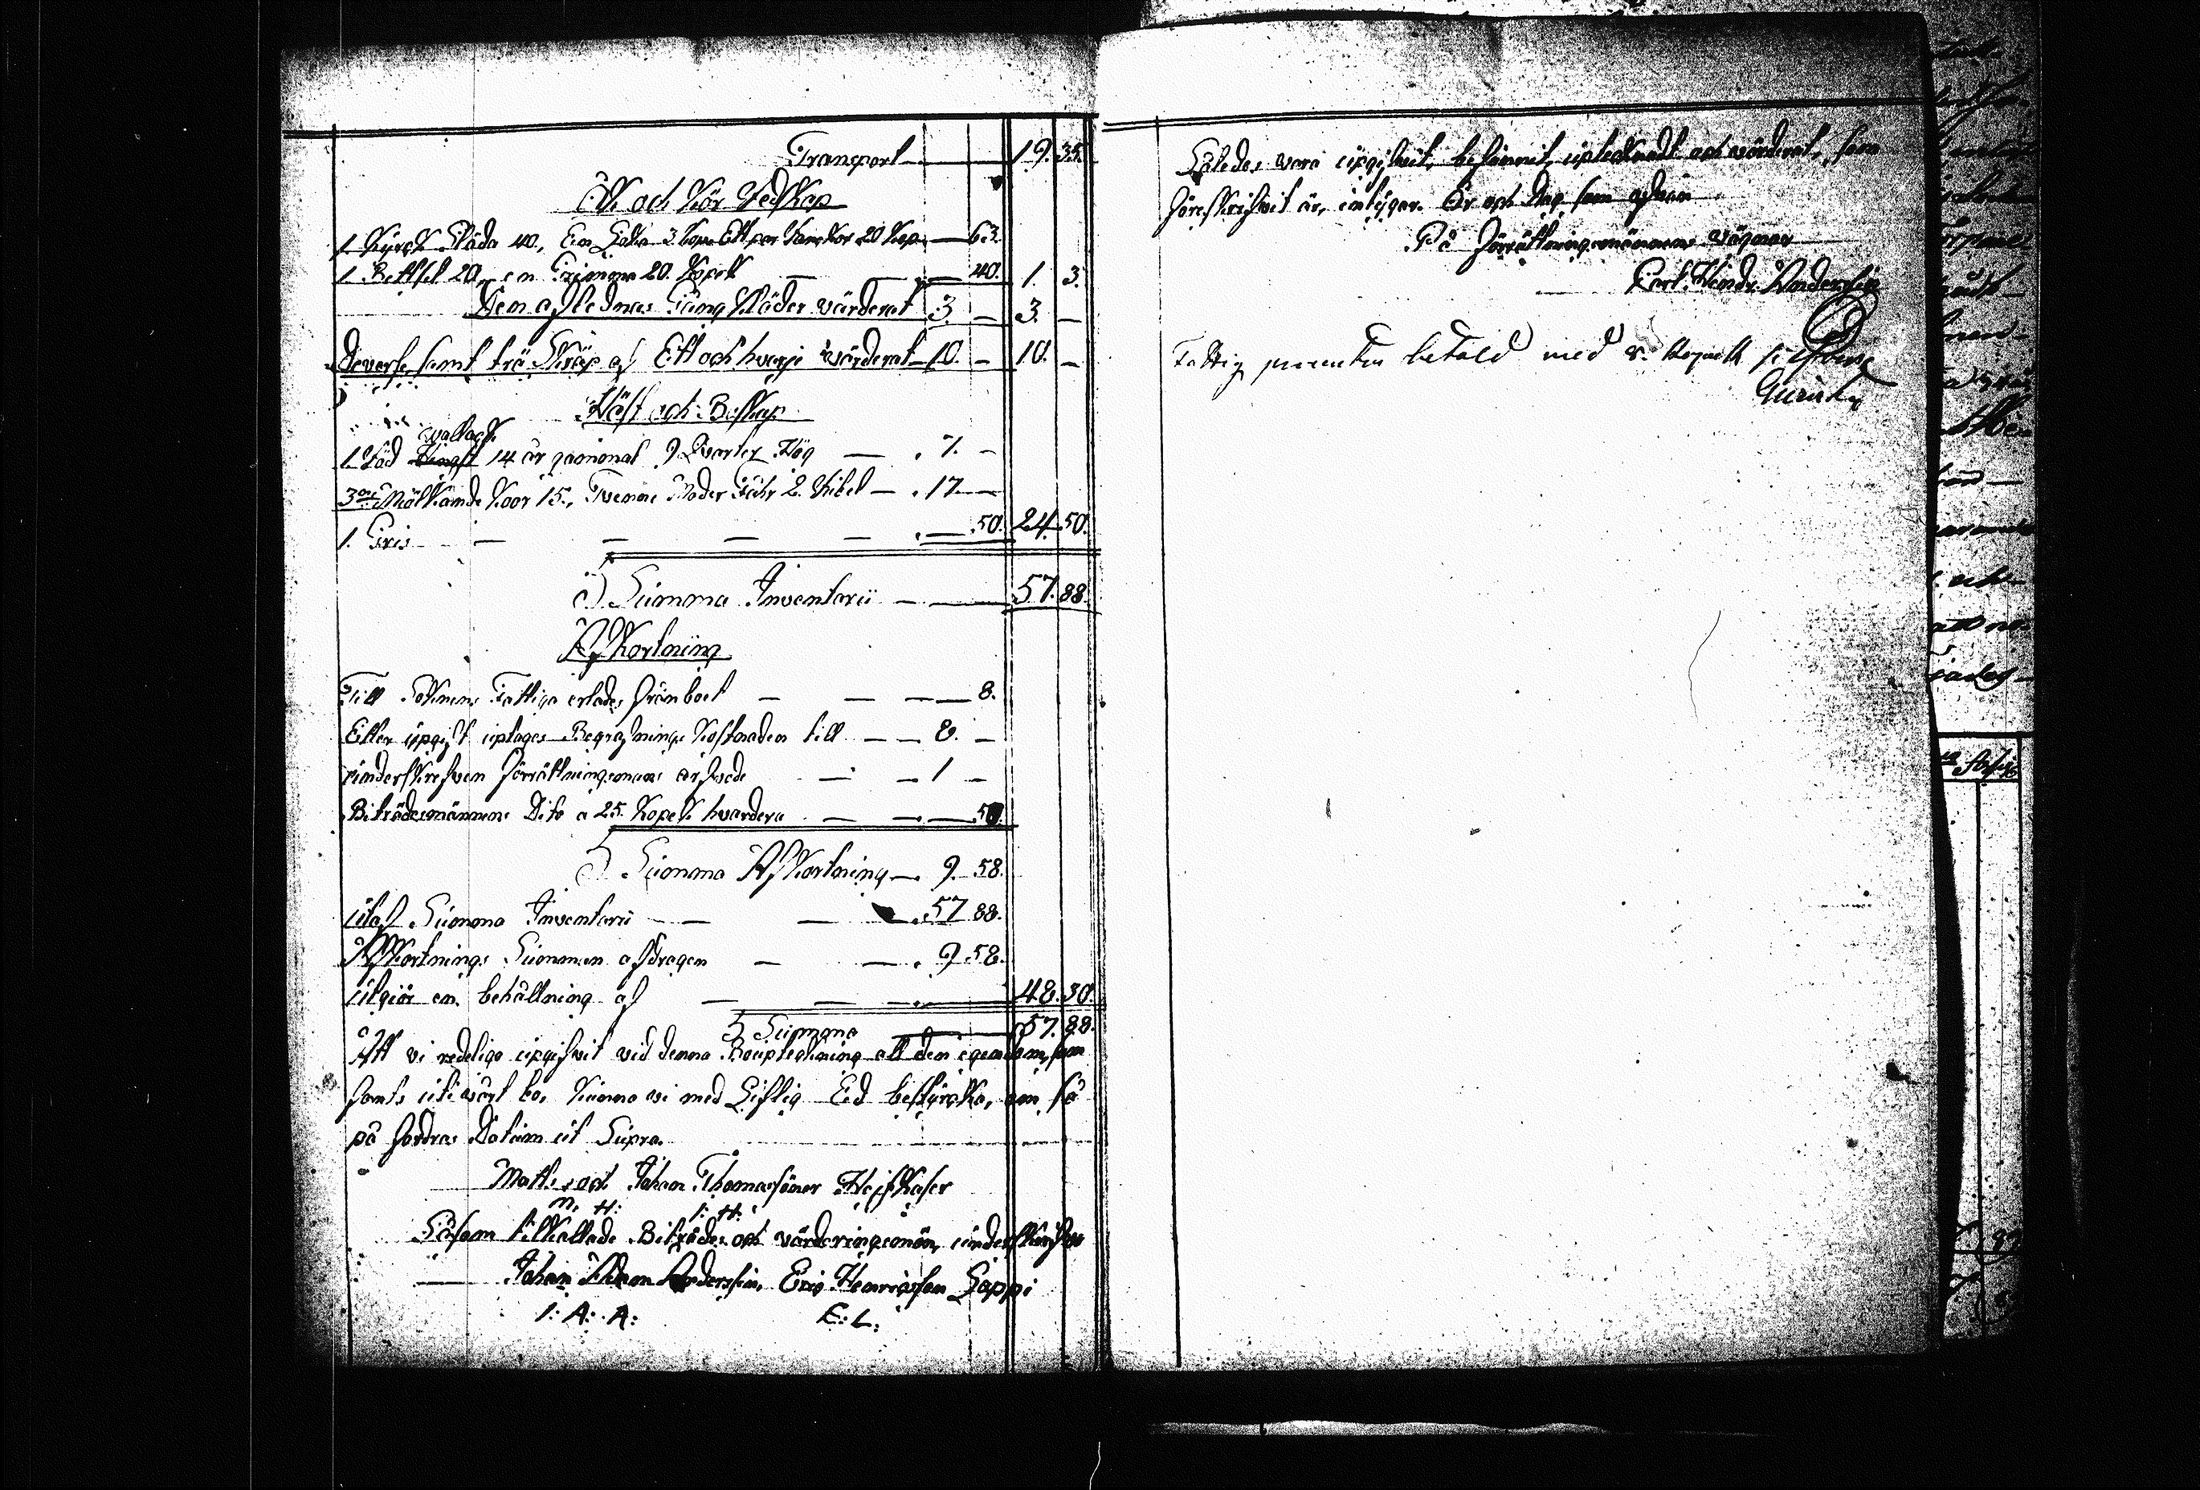 Transport — 19. 35.
Åk och Kör Redskap
1. Kyrck Släda 40, En Kop. Ett par 20 Kop. — 63.
1. Bettsel 20, en Grimma 20. Kopek — 40. 1. 3.
Den aflednas Gång Kläder värderat 3. — 3. —
Diverse samt trä Skräp af Ett och hvarje värderat — 10. — 10. —
Häst och Boskap
wallack
1. Röd Hingst 14 år gammal 9 Qvarter Hög — 7. —
3ne Miölkande Koor 15., Tvenne Moder Fåhr 2. Rubel — 17. —
1. Gris — — — — 50. 24. 50.
S. Summa Inventarii — 57. 88.
Afkortning
Till Sochnens Fattiga erlades från boet — — — 8.
Efter upgift uptages Begrafnings Kostnaden till — — 8. —
underskrefven Förrättningsmans arfvode — — 1 —
Biträdesmännens Dito a 25. Kopek hvardera — — 50.
S. Summa Afkortning — 9. 58.
Utaf Summa Inventarii — — 57 88.
Afkortnings Summan afdragen — — 9. 58.
Utgiör en behållning af — — 48. 30.
S Summa — 57. 88.
Att vi redeliga upgifvit vid denna Boupteckning all den egendom, som
fants uti vårt bo, kunna vi med Liflig Ed bestyrcka, om så
på fordras Datum ut Supra.
Matts och Johan Thomassöner
M. H: I: H:
Såsom tillkallade Biträdes och värderingsmän, underskrifver
Johan Adam Andersson, Eric Henricsson Lappi
I: A: A: E: L:
Således vara upgifvit, befunnit, uptecknadt och värderat, som
föreskrifvit är, intygar. År och Dag som ofvan
På Förrättningsmannens vägnar
Carl Hendr. Andersson
Fattig procenten betald med 8. Kopek